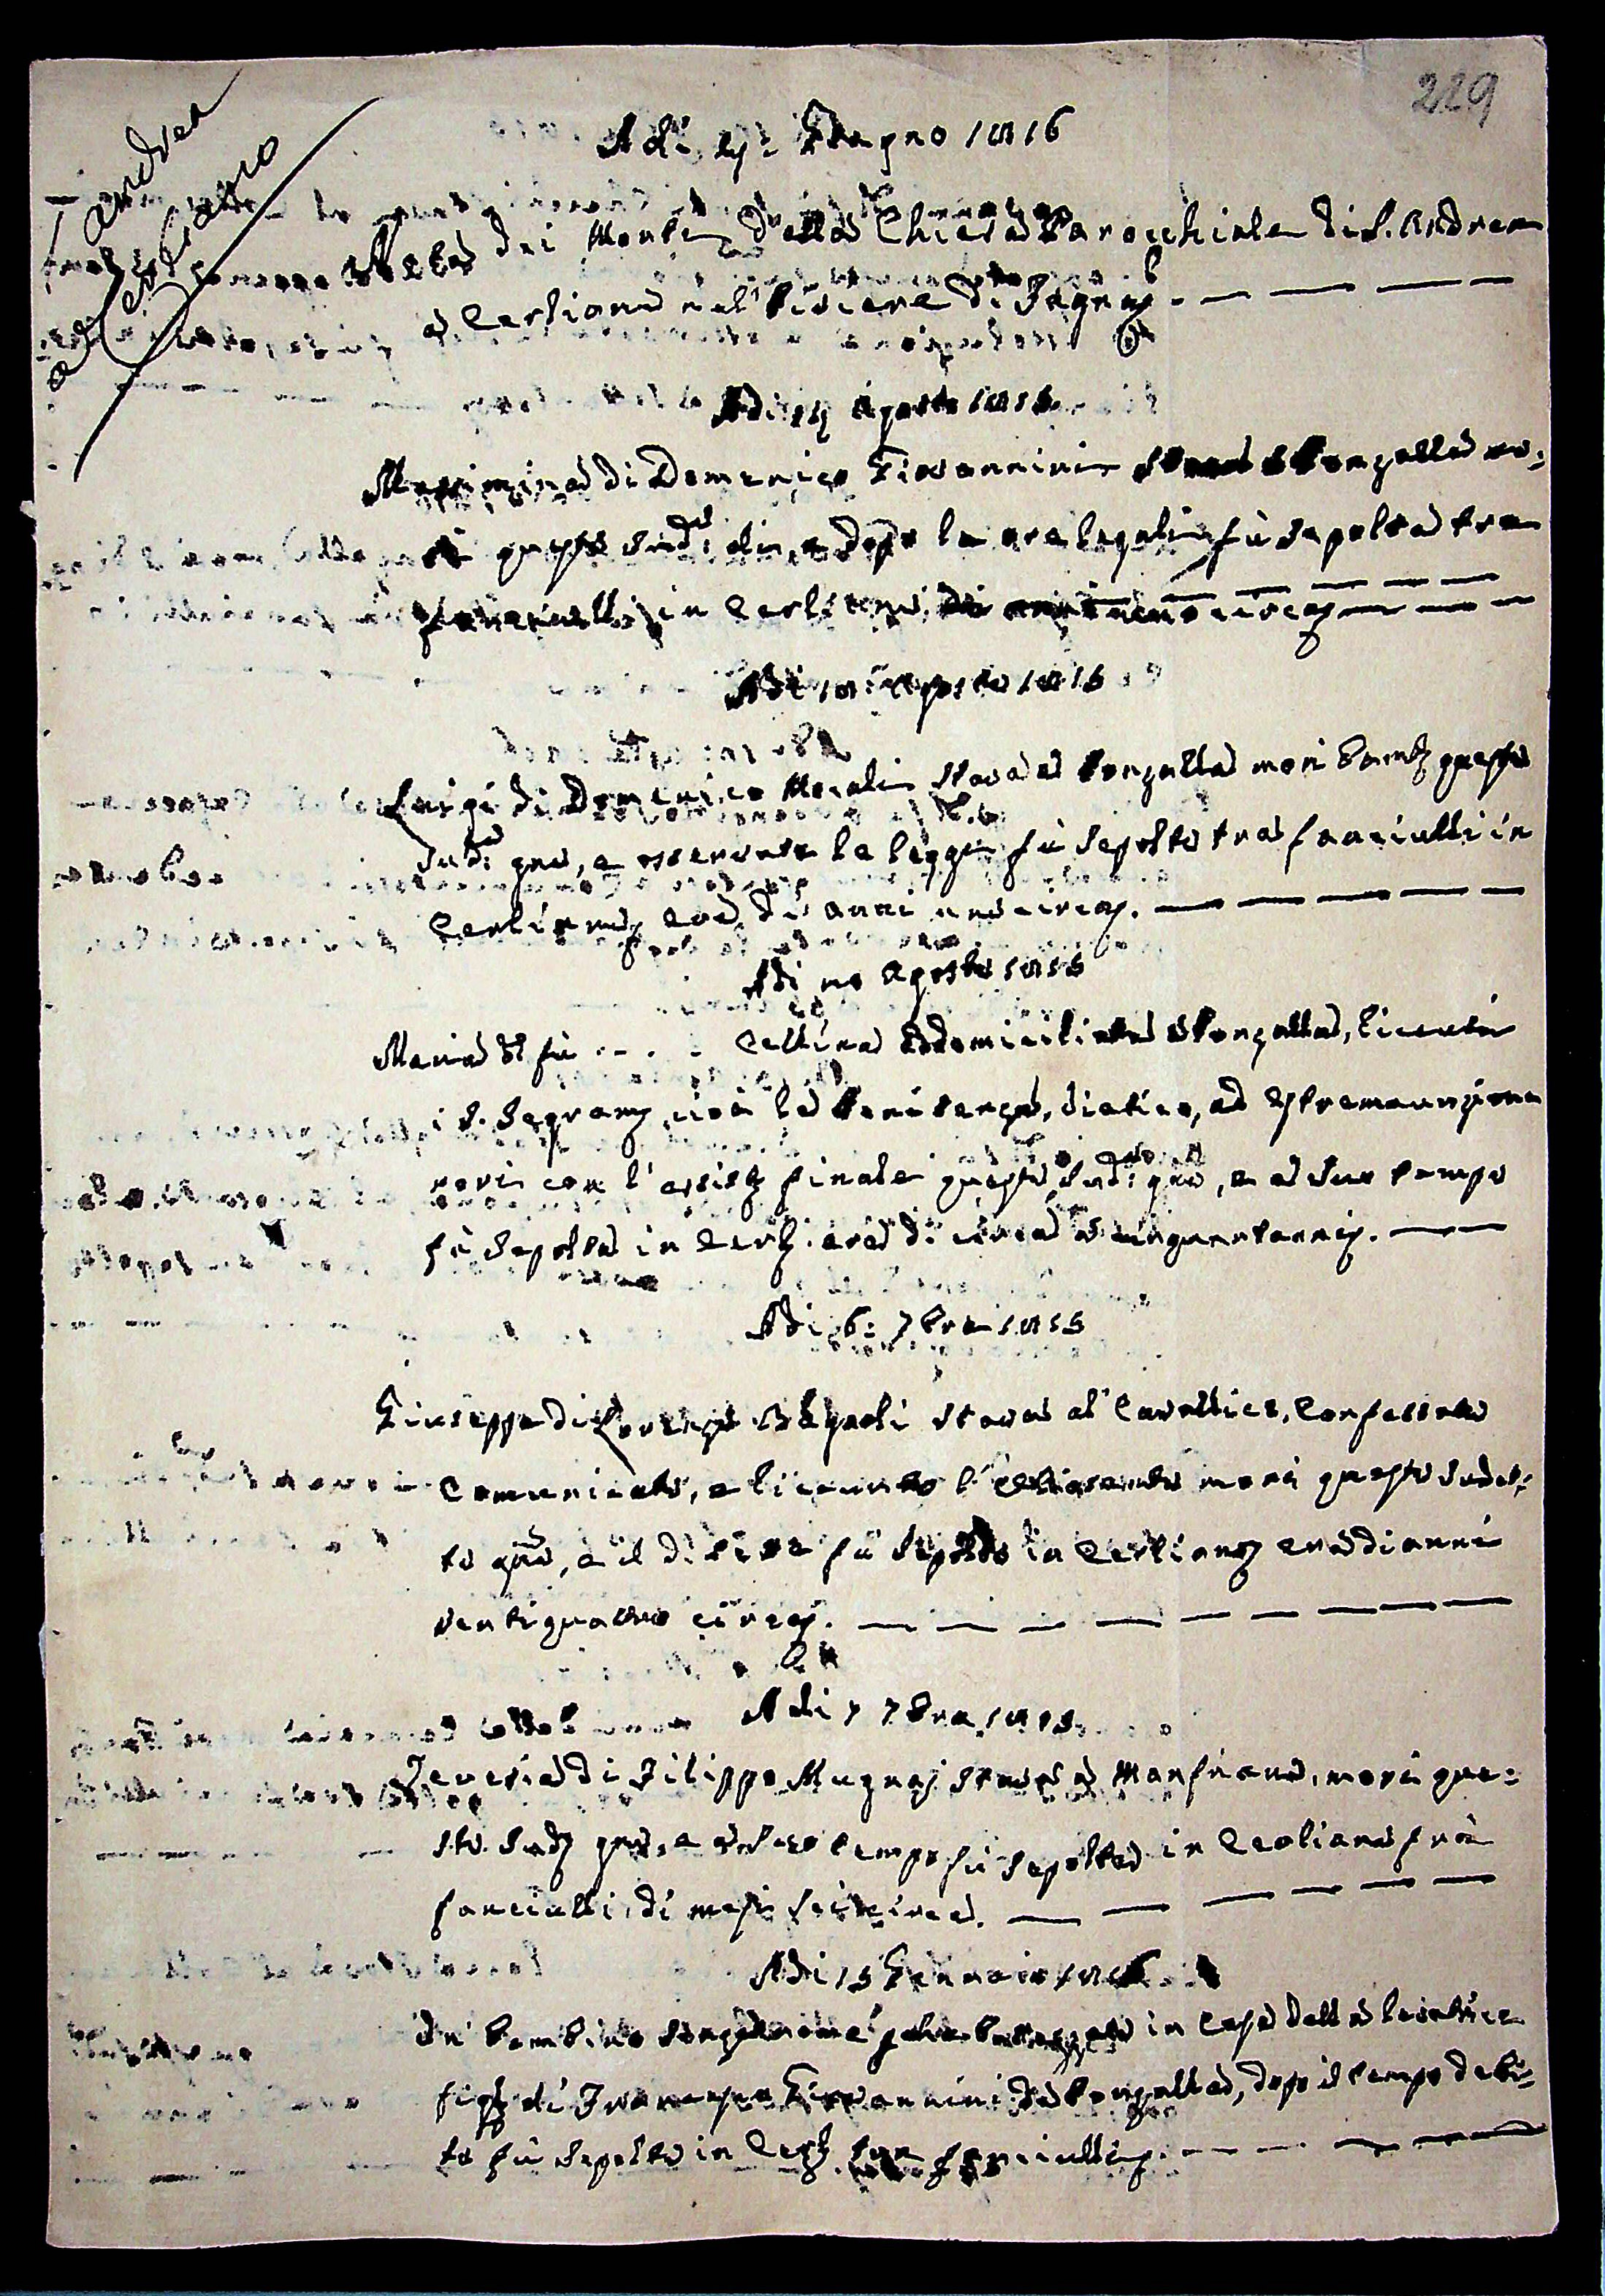 229
S. Andrea
a Cerliano
Adi Giugno 1816
Nota dei Morti della Chiesa Parocchiale di S. Andrea
a Cerliano nel Piviere di Fagna.
Adi Agosto 1815
Massimina di Domenico Giovannini Stava a Ponzalla mo:
rì questo Sudd: di, e dopo le ore legali fù sepolta tra
fanciulli in Cerliano di anni circa
Adi 18: Agosto 1815
Luigi di Domenico Morali Stava a Ponzalla morì questo
Sudd: gno, e osservate le legge fù sepolto tra fanciulli in
Cerliano età di anni uno circa.
Adi 20 Agosto 1815
Maria di fù . - . . Cellina domiciliata a Ponzalla, ricevuti
i S. Segram cioè la Penitenza, Viatico, ed Estremaunzione
morì con l'assist finale questo Sudd: gno, e a suo tempo
fù Sepolta in Cerl: età di circa a cinquantanni.
Adi 6: 7bre 1815
Giuseppe di Lorenzo Bagnoli stava al Cavallico, Confessato
Comunicato, e ricevuto l'Oliosanto morì questo sudet:
to gno, e il di fù Sepolto in Cerliano età di anni
ventiquattro circa.
Adi 7 7bre 1815
Teresia di Filippo Mugnaj stava a Monfiano, morì que:
sto Sud gno, e a suo tempo fù Sepolta in Cerliano frà
fanciulli, di mesi sei circa.
Adi 15 Gennaio 1816
Un bambino senza nome in casa dalla levatrice
figl di Francesco Giovannini da Ponzalla, dopo il tempo debi:
to fù Sepolto in Cerl tra fanciulli.